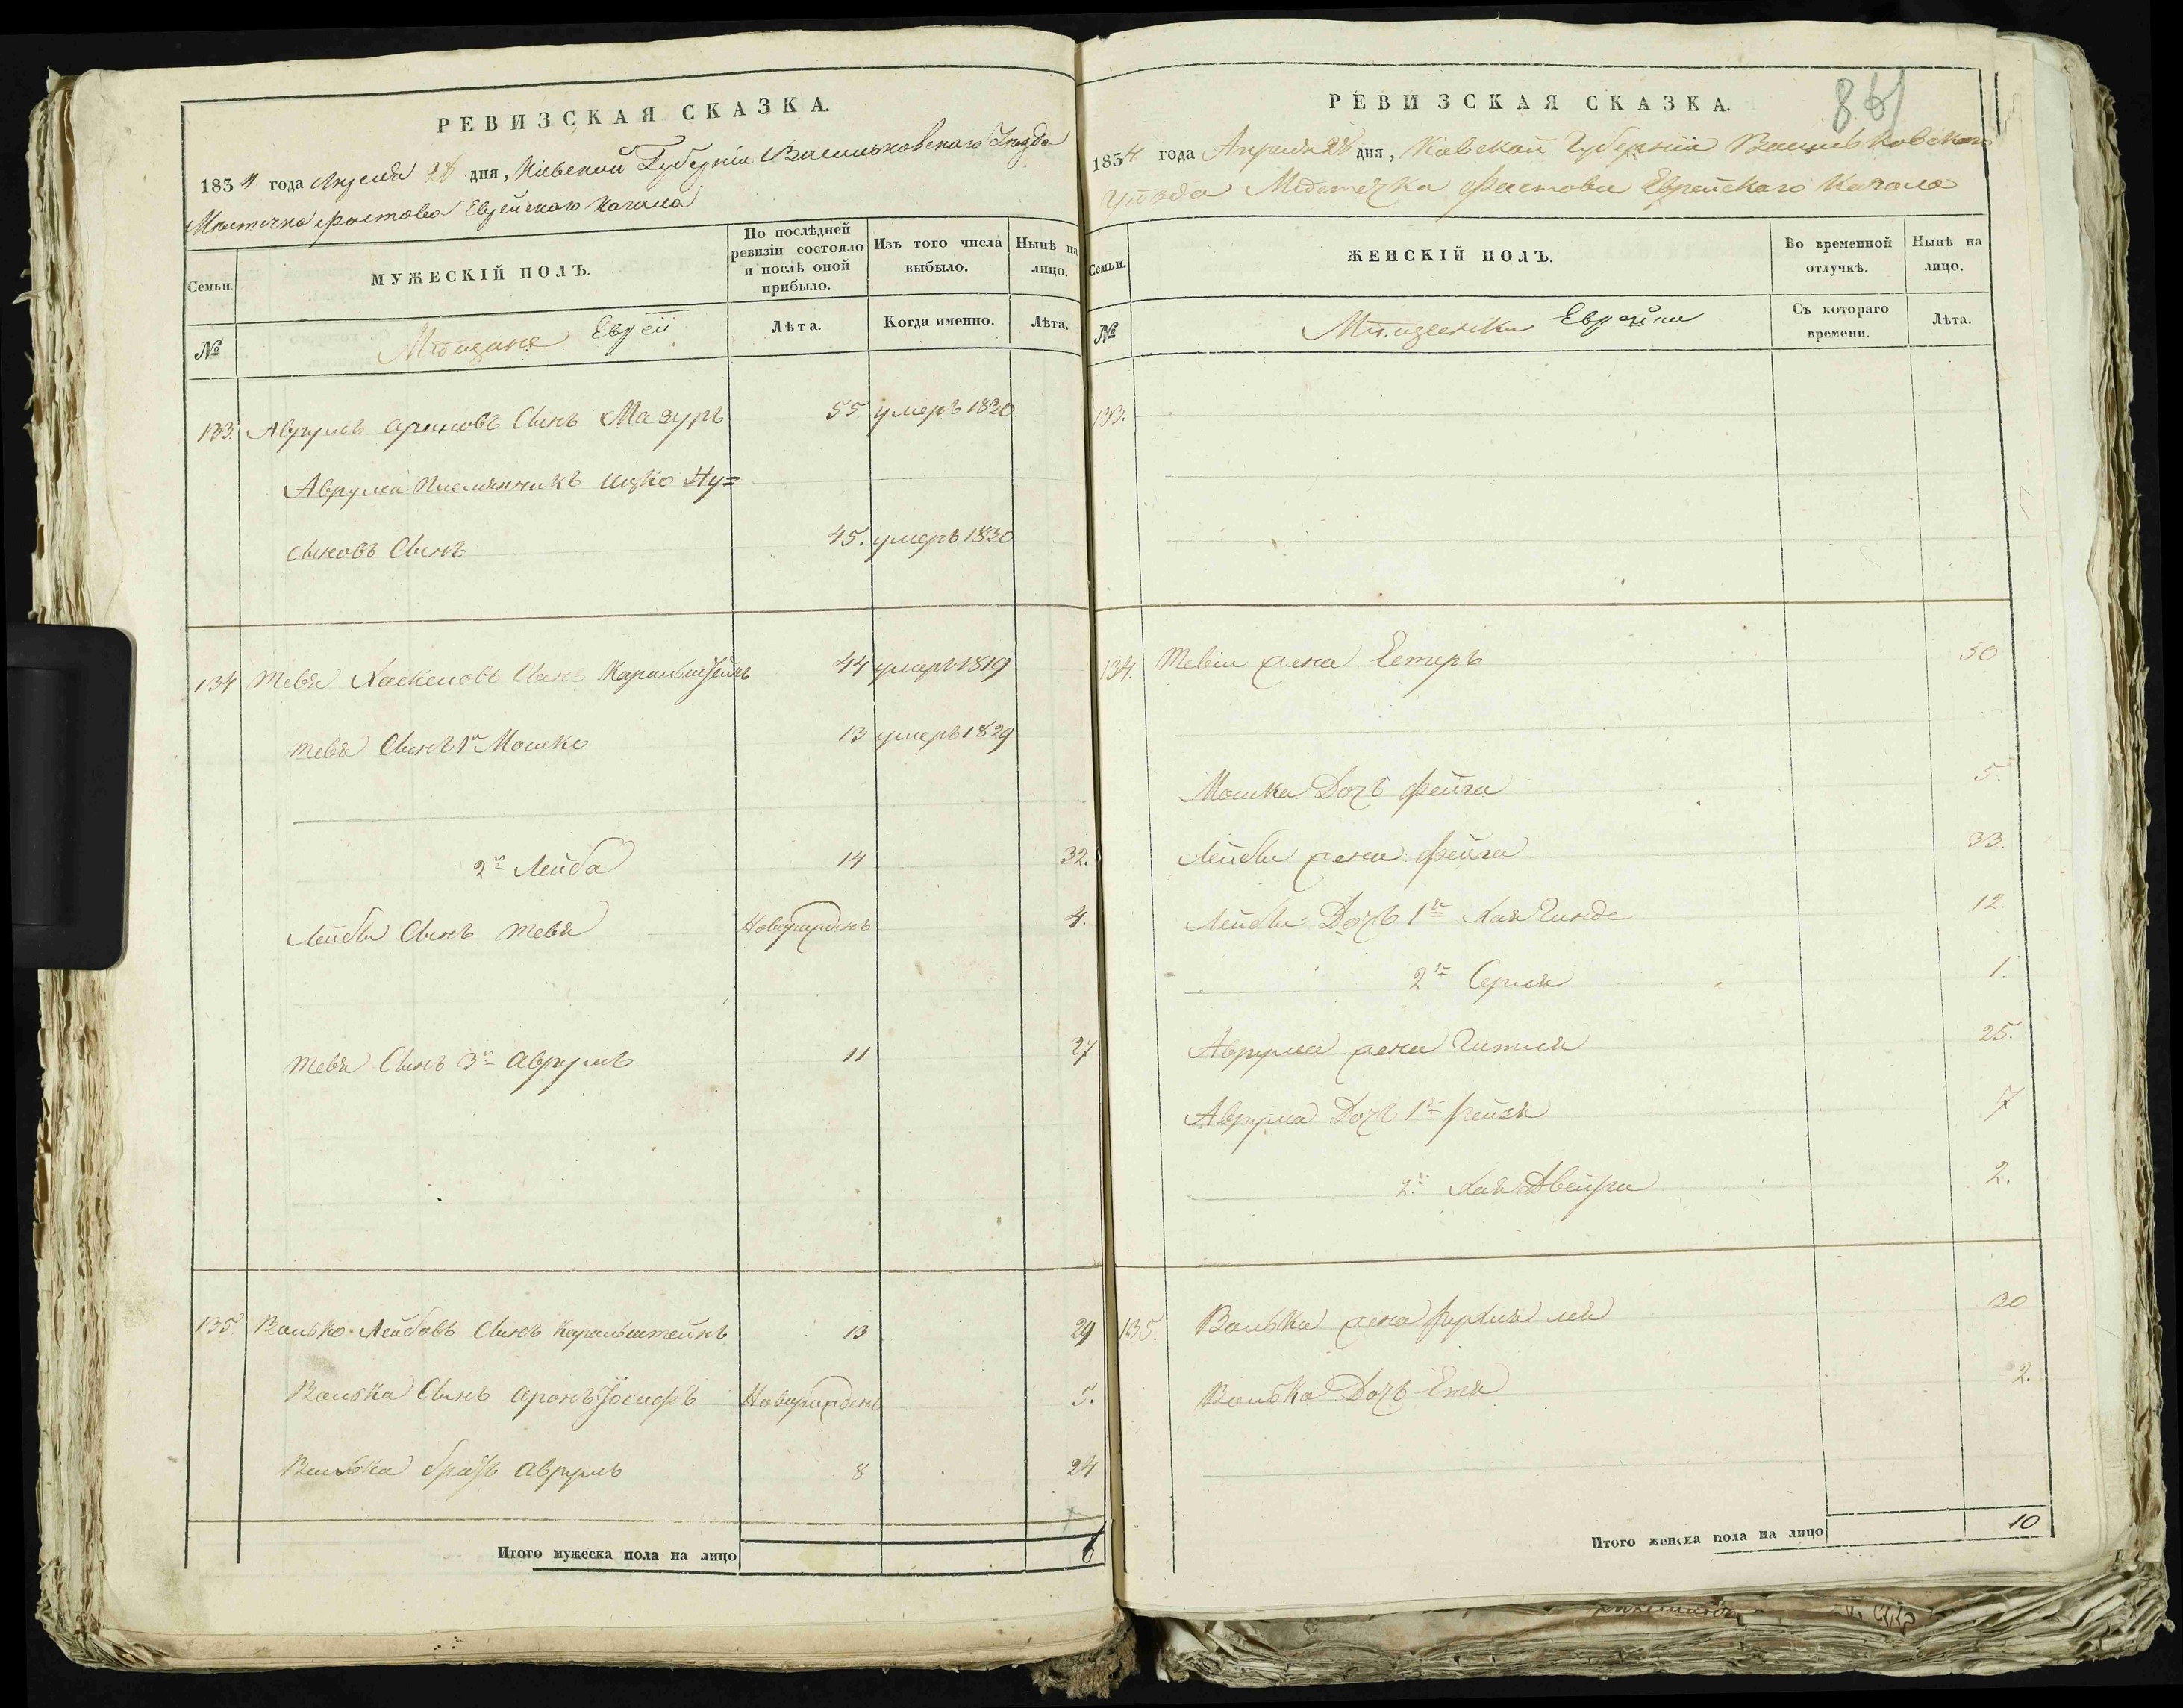 РЕВИЗСКАЯ СКАЗКА.
1834 года Апреля 28 дня, Кіевской Губерніи Васильковскаго Уѣзда
Мѣстечка Фастова Еврейскаго Кагала
Семьи.
МУЖЕСКІЙ ПОЛЪ.
По послѣдней ревизіи состояло и послѣ оной прибыло.
Изъ того числа выбыло.
Нынѣ на лицо.
№
Мѣщане Евреи
Лѣта.
Когда именно.
Лѣта.
133. Аврумъ Ароновъ Сынъ Мазуръ 55 умеръ 1820
Аврума Племянникъ Ицко Ну=
сыновъ Сынъ 45. умеръ 1830
134 Тевя Хаскелов Сынъ Каральштейнъ 44 умеръ 1819
Тевя Сынъ 1й Мошко 13 умеръ 1829
2й Лейба 14 32.
Лейбы Сынъ Тевя Новорожденъ 4.
Тевя Сынъ 3й Аврумъ 11 27
135. Волько Лейбовъ Сынъ Каральштейнъ 13 29
Волька Сынъ Аронъ Іосифъ Новорожденъ 5.
Волька братъ Аврумъ 8 24
Итого мужеска пола на лицо 6
РЕВИЗСКАЯ СКАЗКА.
1834 года Апреля 28 дня, Кіевской Губерніи Васильковскаго
Уѣзда Мѣстечка Фастова Еврейскаго Кагала
Семьи.
ЖЕНСКІЙ ПОЛЪ.
Во временной отлучкѣ.
Нынѣ на лицо.
№
Мѣщанки Еврейки
Съ котораго времени.
Лѣта.
133.
134. Тевіи жена Естеръ 50
Мошка Дочь Фейга 5.
Лейбы жена Фейга 33.
Лейбы Дочь 1я Хая Гинде 12.
2я Сурля 1.
Аврума жена Гитля 25.
Аврума Дочь 1я Рейзя 7
2я Хая Двейра 2.
135. Волька жена Рухля лея 30
Волька Дочь Етя 2.
Итого женска пола на лицо 10